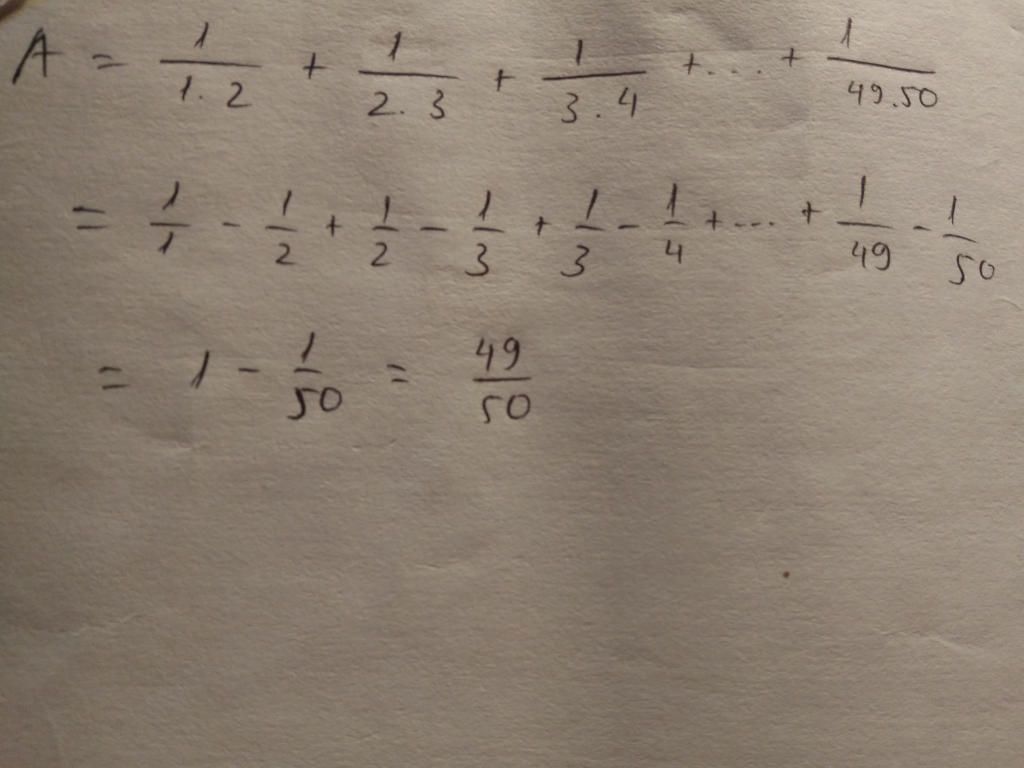 A = 1/1.2 + 1/2.3 + 1/3.4 +...+ 1/49.50
= 1/1 - 1/2 + 1/2 - 1/3 + 1/3 - 1/4 +...+ 1/49 - 1/50
= 1 - 1/50 = 49/50